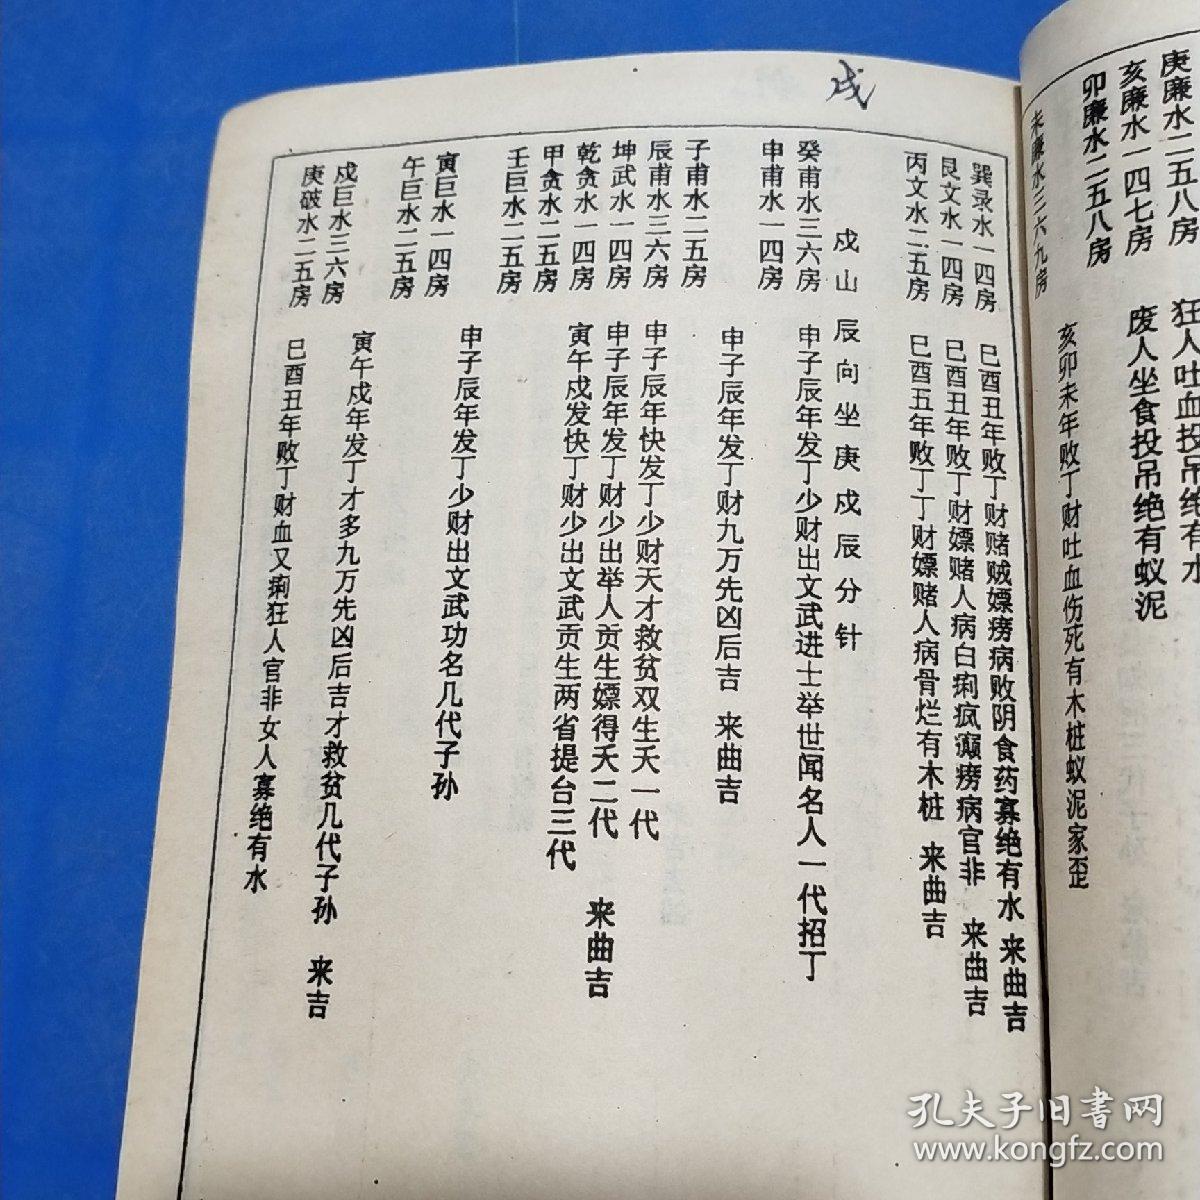 庚廉水二五八房
亥廉水一四七房
卯廉水二五八房
未廉水三六九房
狂人吐血投吊绝有水
废人坐食投吊绝有蚁泥
亥卯未年败丁财吐血伤死有木桩蚁泥家歪
戍
巽录水一四房 巳酉丑年败丁财赌贼嫖痨病败阴食药寡绝有水 来曲吉
艮文水一四房 巳酉丑年败丁财嫖赌人病白痢疯癫痨病官非 来曲吉
丙文水二五房 巳酉五年败丁丁财嫖赌人病骨烂有木桩 来曲吉
戍山辰向坐庚戍辰分针
癸甫水三六房 申子辰年发丁少财出文武进士举世闻名人一代招丁
申甫水一四房
子甫水二五房 申子辰年发丁财九万先凶后吉 来曲吉
辰甫水三六房 申子辰年快发丁少财天才救贫双生夭一代
坤武水一四房 申子辰年发丁财少出举人贡生嫖得夭二代 来曲吉
乾贪水一四房 寅午戍发快丁财少出文武贡生两省提台三代
甲贪水二五房
壬巨水二五房
寅巨水一四房 申子辰年发丁少财出文武功名几代子孙
午巨水二五房
戍巨水三六房 寅午戍年发丁才多九万先凶后吉才救贫几代子孙 来吉
庚破水二五房 巳酉丑年败丁财血又痢狂人官非女人寡绝有水
孔夫子旧书网
www.kongfz.com